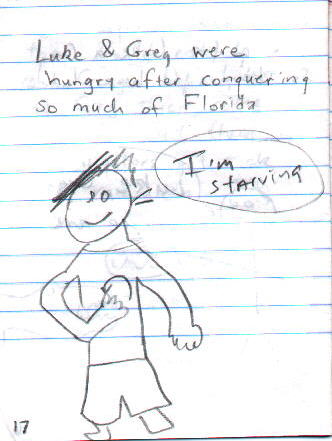 Luke & Greg were
hungry after conquering
so much of Florida
I'm
starving
17